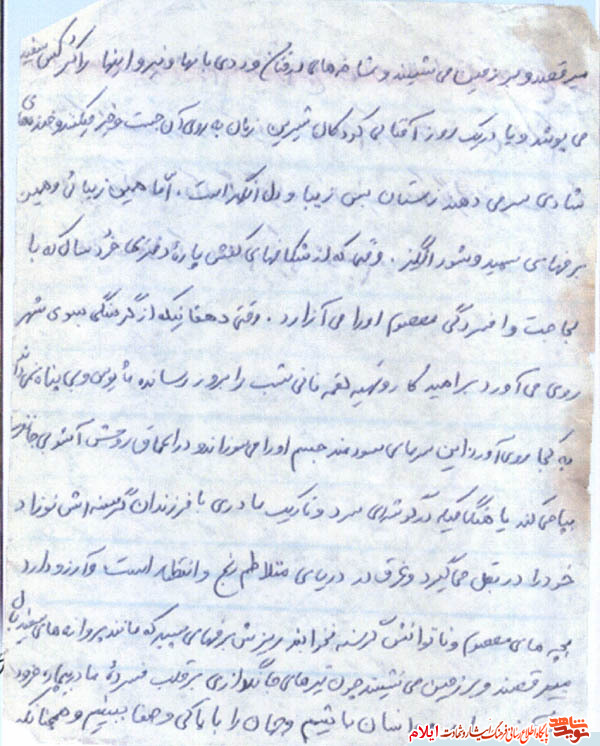 میرقصند و بر زمین می نشیند و شاخه های درختان و بامها و اینها را کفن سفید
می پوشد و یا در یک روز آفتابی کودکان شیرین زبان به روی آن جست و خیز میکنند و خنده های
شادی سر می دهند زمستان بس زیبا و دل انگیز است . اما همین زیبائی و همین
برفهای سپید و شورانگیز . وقتی که از شکافهای کفش پاره دختری خردسال که با
لجاجت و افسردگی معصوم او را می آزارد . وقتی دهقانیکه از گرسنگی بسوی شهر
روی می آورد بر امید کار و تهیه لقمه نانی شب را بروز رسانده مأیوس و بی پناه
به کجا روی آورد این سرمای سودمند جسم او را می سوزاند و در اعماق روحش آشوبی
بپا می کند یا هنگامیکه در گوشه ای سرد و تاریک مادری با فرزندان گرسنه اش نوزاد
خود را در بغل می گیرد و غرق در دریای متلاطم رنج و انتظار است و آرزو دارد
بچه های معصوم و ناتوانش گرسنه نخوابند ریزش برفهای سپید که مانند پروانه های سفید بال
میرقصند و بر زمین می نشیند چون تیرهای جانگدازی بر قلب فسرده مادر بیچاره فرود
انسان باشیم و جهان را با پاکی و صفا ببینیم و همچنانکه
نوید شاهد
پایگاه اطلاع رسانی فرهنگ ایثار و شهادت ایلام